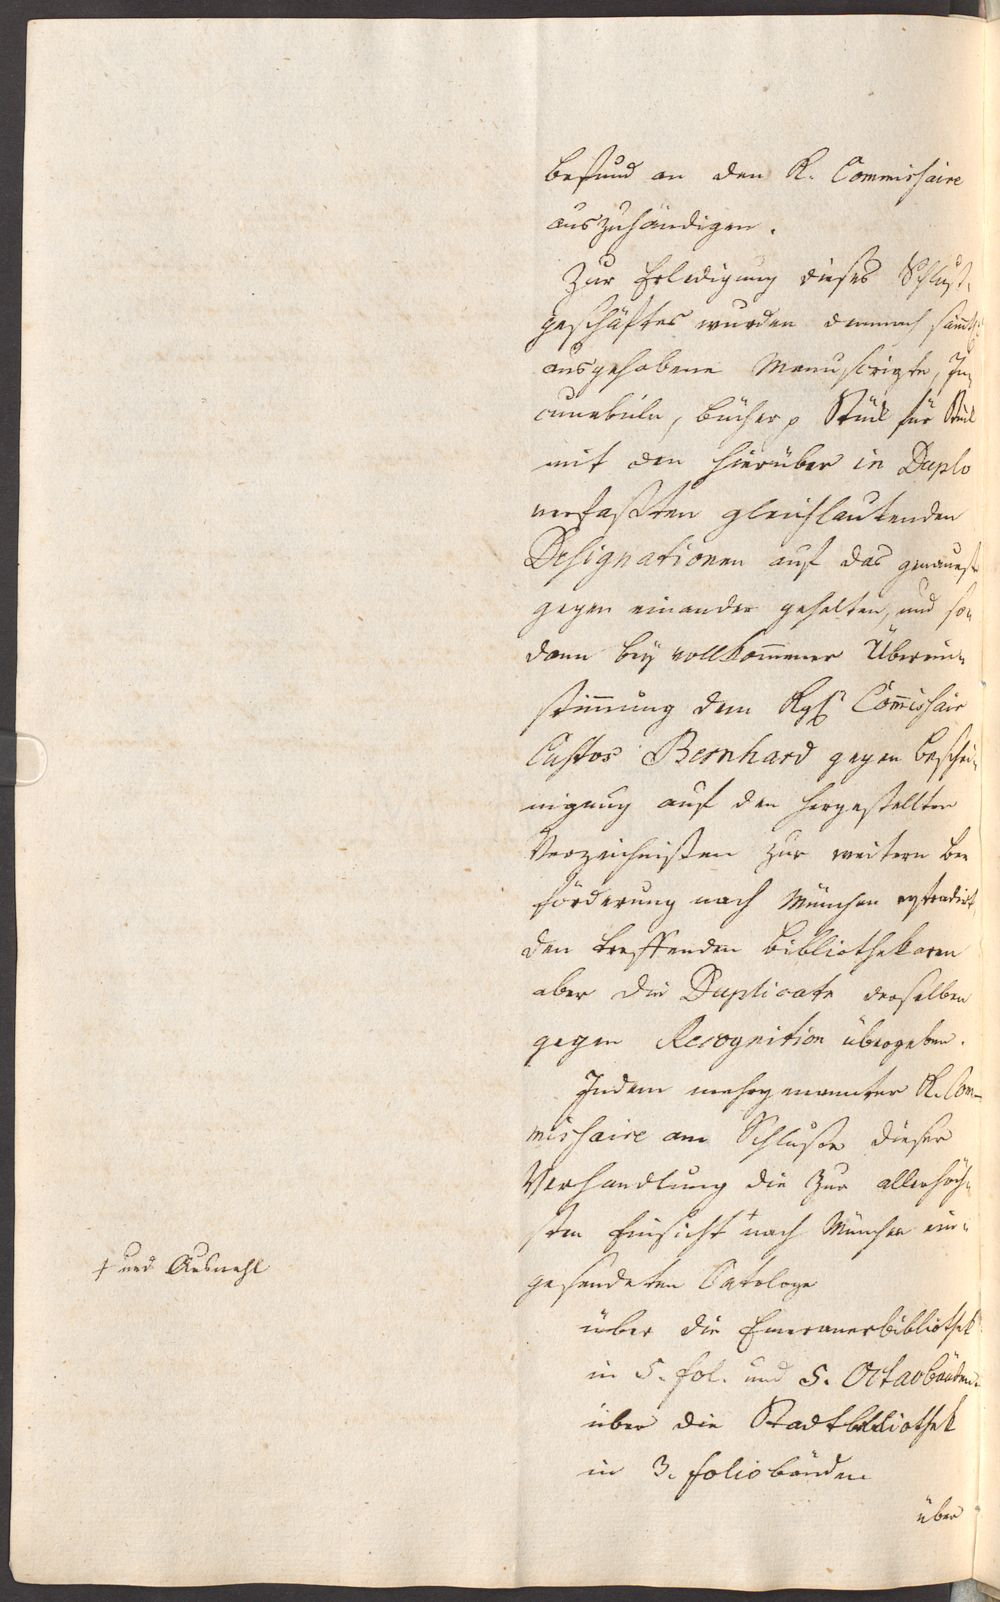 befund an den K. Commissaire
auszuhändigen.
Zur Erledigung dieses Schluß-
geschäftes wurden demnach sämtl.
ausgehobene Manuscripte, In-
cunebúln, Bücher p Stück für Stück
mit den hierüber in Duplo
verfaßten gleichlautenden
Designationen auf das genauest
gegen einander gehalten, und so-
dann bey vollkom̅ener Überein-
stim̅ung dem Kgl. Com̅issair
Custos Bernhard gegen Beschei-
nigung auf den hergestellten
Verzeichnißen zur weitern Be
förderung nach München extradirt
den treffenden Bibliothekaren
aber die Duplicate derselben
gegen Recognition übergeben.
Indem mehrgenannter K. Com-
missaire am Schluße dieser
Verhandlung die zur allerhöch-
sten Einsicht + nach München ein-
gesendeten Cataloge
über die Emeranerbibliothek
in 5. fol. und 5. Octavbänden
über die Stadtbibliothek
in 3. foliobänden
über
+ und Auswahl